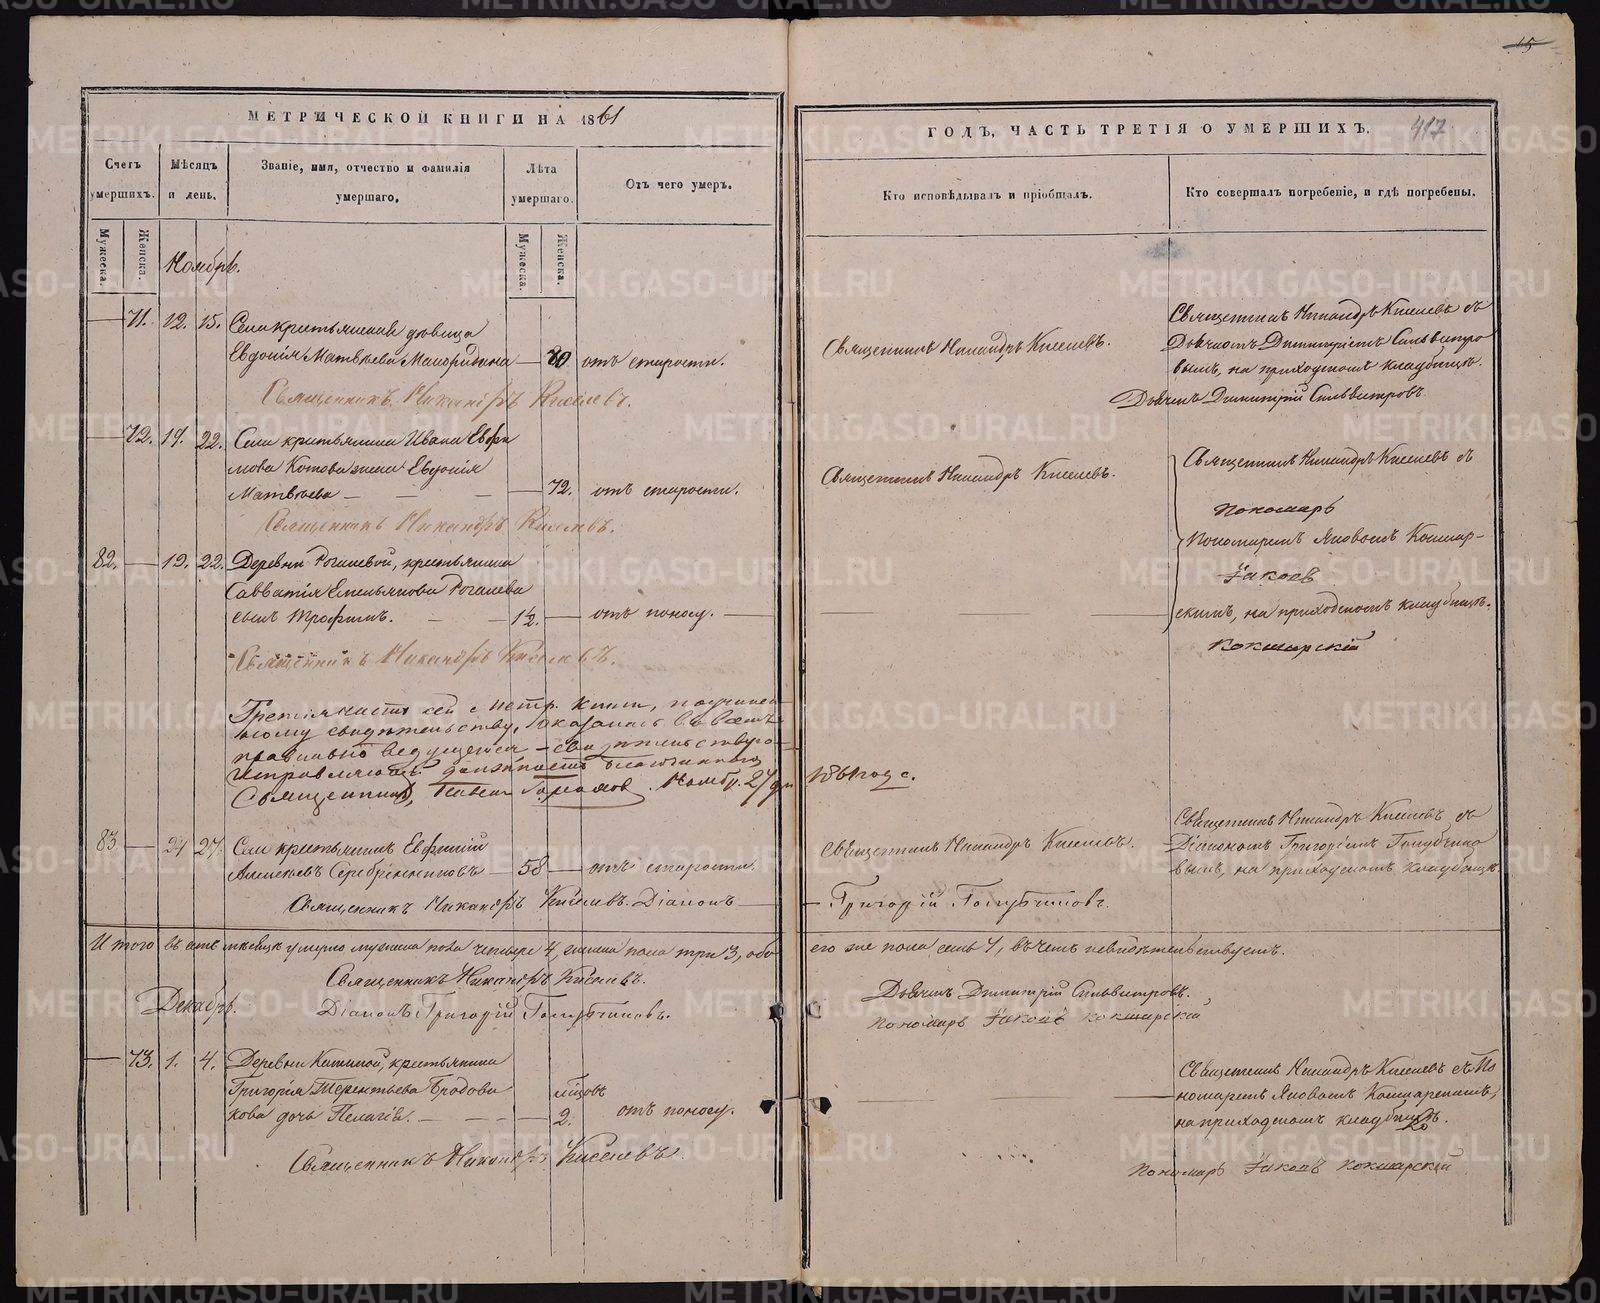 МЕТРИЧЕСКОЙ КНИГИ НА 1861
ГОДЪ, ЧАСТЬ ТРЕТІЯ О УМЕРШИХЪ.
417
15
Счетъ умершихъ.
Мѣсяцъ и день.
Званіе, имя, отчество и фамилія умершаго.
Лѣта умершаго.
Отъ чего умеръ.
Кто исповѣдывалъ и пріобщалъ.
Кто совершалъ погребеніе, и гдѣ погребены.
Мужеска.
Женска.
Мужеска.
Женска.
Ноябрь.
71. 12. 15. Села крестьянская дѣвица
Евдокія Матвѣева 80 отъ старости.
Священникъ Никандръ Киселевъ.
Священникъ Никандръ Киселевъ съ
Дьячкомъ Димитріемъ Сильвестро
вымъ, на приходскомъ кладбищѣ.
Священникъ Никандръ Киселевъ.
Дьячекъ Димитрій Сильвестровъ.
72. 19. 22. Села крестьянина Ивана Евфи
мова Котова жена Евдокія
Матвѣева 72. отъ старости.
Священникъ Никандръ Киселевъ.
Священникъ Никандръ Киселевъ съ
Священникъ Никандръ Киселевъ.
Пономарь
Пономаремъ Яковомъ Кокшар-
Іаковъ
скимъ, на приходскомъ кладбищѣ.
Кокшарскій
82. 19. 22. Деревни Рогалевой, крестьянина
Савватія Емельянова Рогалева
сынъ Трофимъ. 1/2. отъ поносу.
Священникъ Никандръ Киселевъ.
Третія часть сей метр. книги, подчинен
ному свидѣтельству, оказалась во всемъ
правильно ведущейся – свидѣтельствую
Исправляющій должность благочиннаго
Священникъ, Ноябр. 27 дня 1861 года.
83. 24 27. Села крестьянинъ Евфимій
Алексѣевъ Серебрянниковъ 58 отъ старости.
Священникъ Никандръ Киселевъ.
Священникъ Никандръ Киселевъ съ
Діакономъ Григоріемъ Голубчико
вымъ, на приходскомъ кладбищѣ.
Священникъ Никандръ Киселевъ. Діаконъ Григорій Голубчиковъ.
Итого въ семъ мѣсяцѣ умерло мужеска пола четыре 4, женска пола три 3, обо
его же пола семь 7, въ чемъ и свидѣтельствуемъ.
Священникъ Никандръ Киселевъ.
Діаконъ Григорій Голубчиковъ.
Дьячекъ Димитрій Сильвестровъ.
Пономарь Іаковъ Кокшарскій
Декабрь.
73. 1. 4. Деревни крестьянина
Григорія Терентьева Бродови
кова дочь Пелагія. мѣсяцовъ 2. отъ поносу.
Священникъ Никандръ Киселевъ съ По
номаремъ Яковомъ Кокшарскимъ,
на приходскомъ кладбищѣ.
Священникъ Никандръ Киселевъ.
Пономарь Іаковъ Кокшарскій
METRIKI.GASO-URAL.RU